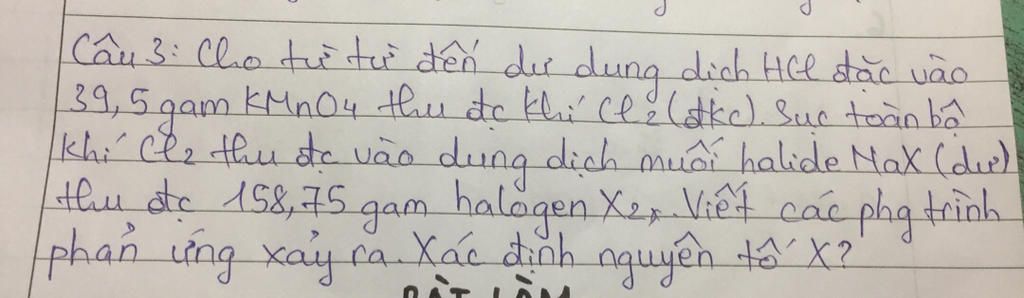 Câu 3: Cho từ từ đến dư dung dịch HCl đặc vào
39,5 gam KMnO4 thu đc khí Cl2 (đkc). Sục toàn bộ
khí Cl2 thu đc vào dung dịch muối halide NaX (dư)
thu đc 158,75 gam halogen X2. Viết các phg trình
phản ứng xảy ra. Xác định nguyên tố X?
BÀI LÀM